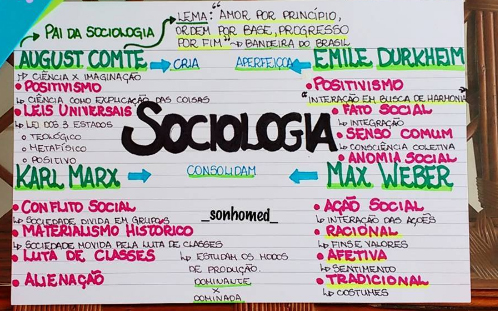 → PAI DA SOCIOLOGIA
→ LEMA: "AMOR POR PRINCÍPIO,
ORDEM POR BASE, PROGRESSO
POR FIM" → BANDEIRA DO BRASIL
AUGUST COMTE → CRIA
↳ CIÊNCIA X IMAGINAÇÃO
• POSITIVISMO
↳ CIÊNCIA COMO EXPLICAÇÃO DAS COISAS
• LEIS UNIVERSAIS
↳ LEI DOS 3 ESTADOS
○ TEOLÓGICO
○ METAFÍSICO
○ POSITIVO
APERFEIÇOA ← EMILE DURKHEIM
• POSITIVISMO
"INTERAÇÃO EM BUSCA DE HARMONIA"
• FATO SOCIAL
↳ INTEGRAÇÃO
• SENSO COMUM
↳ CONSCIÊNCIA COLETIVA
• ANOMIA SOCIAL
SOCIOLOGIA
KARL MARX →
CONSOLIDAM
← MAX WEBER
_sonhomed_
• CONFLITO SOCIAL
↳ SOCIEDADE DIVIDA EM GRUPOS
• MATERIALISMO HISTÓRICO
↳ SOCIEDADE MOVIDA PELA LUTA DE CLASSES
• LUTA DE CLASSES
↳ ESTUDAM OS MODOS
DE PRODUÇÃO.
DOMINANTE
X
DOMINADA
• ALIENAÇÃO
• AÇÃO SOCIAL
↳ INTERAÇÃO DAS AÇÕES
• RACIONAL
↳ FINS E VALORES
• AFETIVA
↳ SENTIMENTO
• TRADICIONAL
↳ COSTUMES